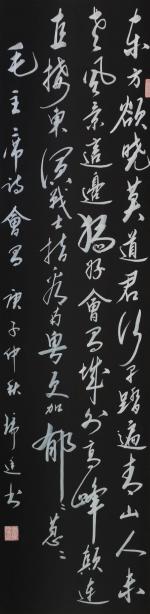 东方欲晓莫道君行早踏遍青山人未
老风景这边独好会昌城外高峰颠连
直接东溟战士指看南粤更加郁郁葱葱
毛主席诗会昌 庚子仲秋 书